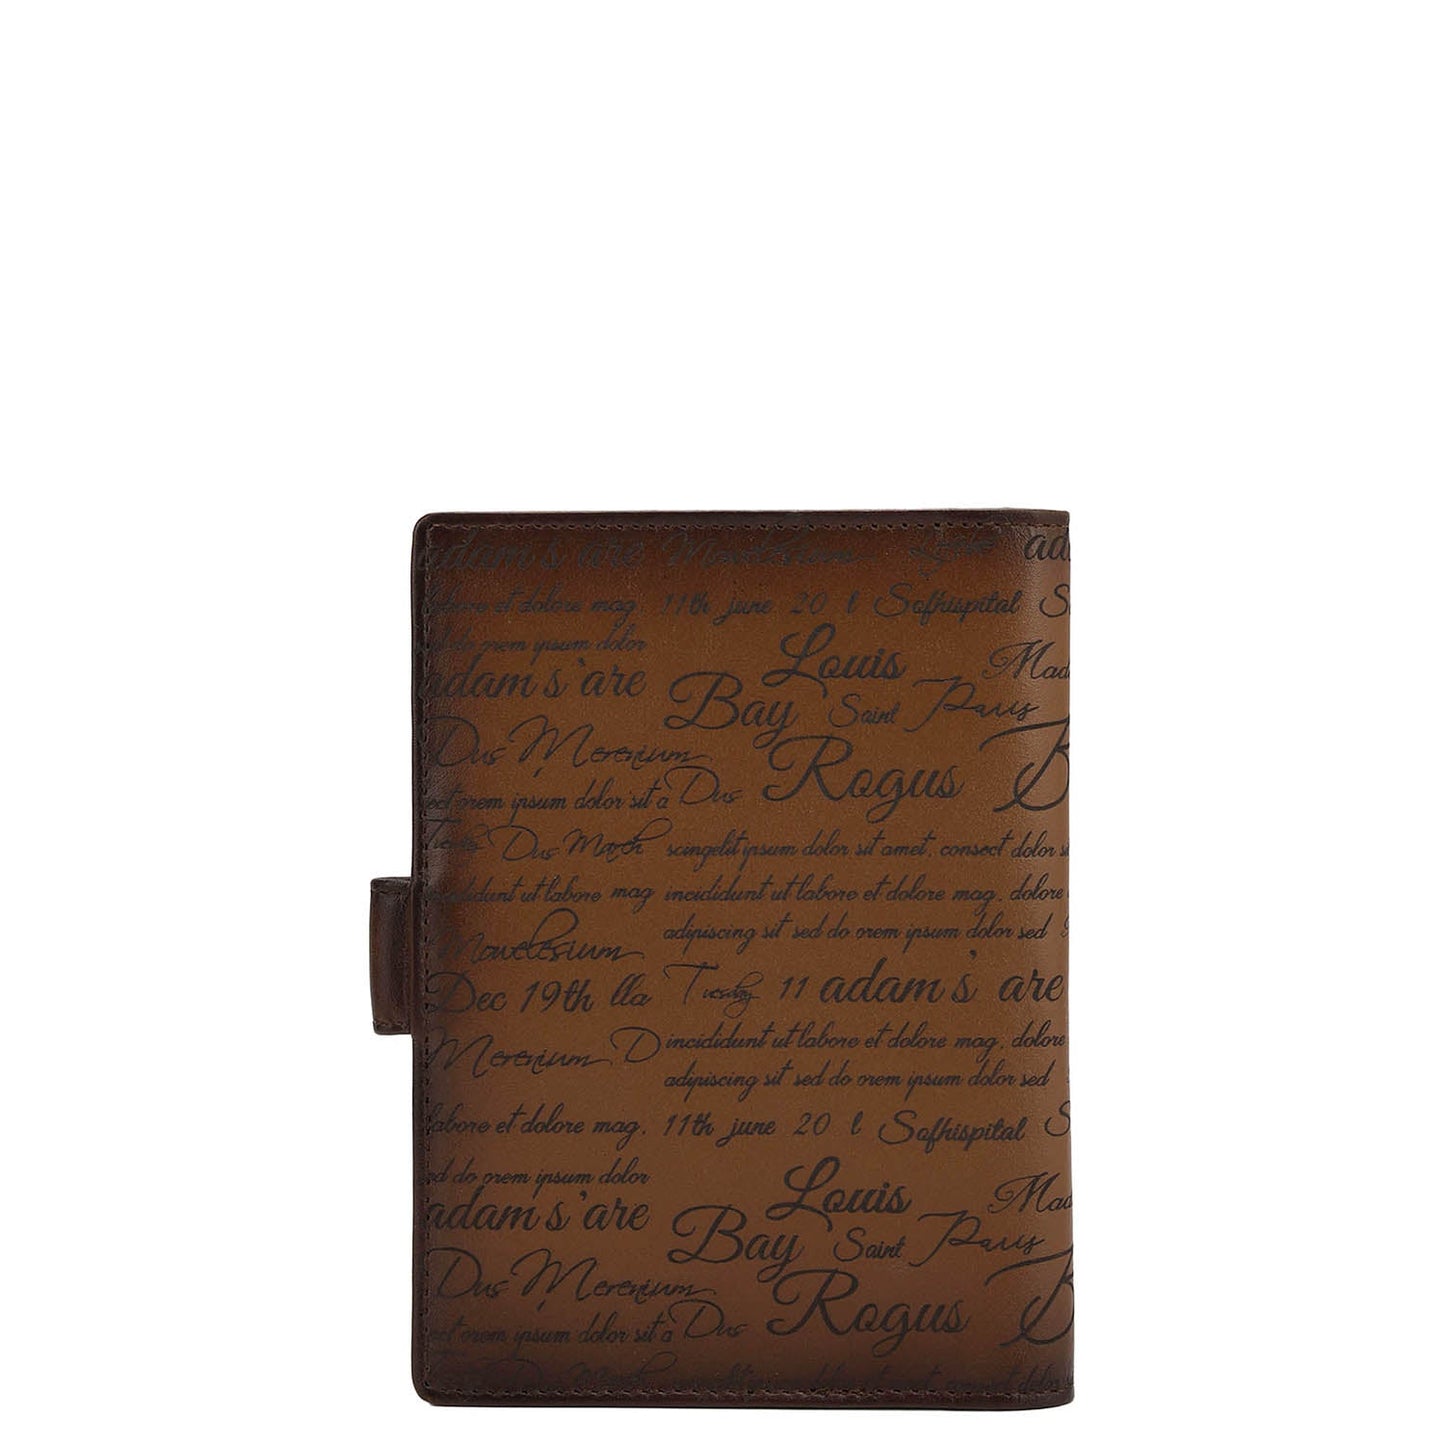 adam's 'are
labore et dolore mag. 11th june 20 l Sofhispital S
do orem ipsum dolor
Louis Mad
adam's 'are Bay Saint Paris
Dus Merenium Rogus B
ect orem ipsum dolor sit a Dus
Dus March scingelit ipsum dolor sit amet, consect dolor si
incididunt ut labore mag incididunt ut labore et dolore mag, dolore
adipiscing sit sed do orem ipsum dolor sed
Mawelesium
Dec 19th lla Tuesday 11 adam's are
Merenium D incididunt ut labore et dolore mag, dolore
adipiscing sit sed do orem ipsum dolor sed
labore et dolore mag. 11th june 20 l Sofhispital S
ed do orem ipsum dolor
Louis Mad
adam's 'are Bay Saint Paris
Dus Merenium Rogus B
ect orem ipsum dolor sit a Dus